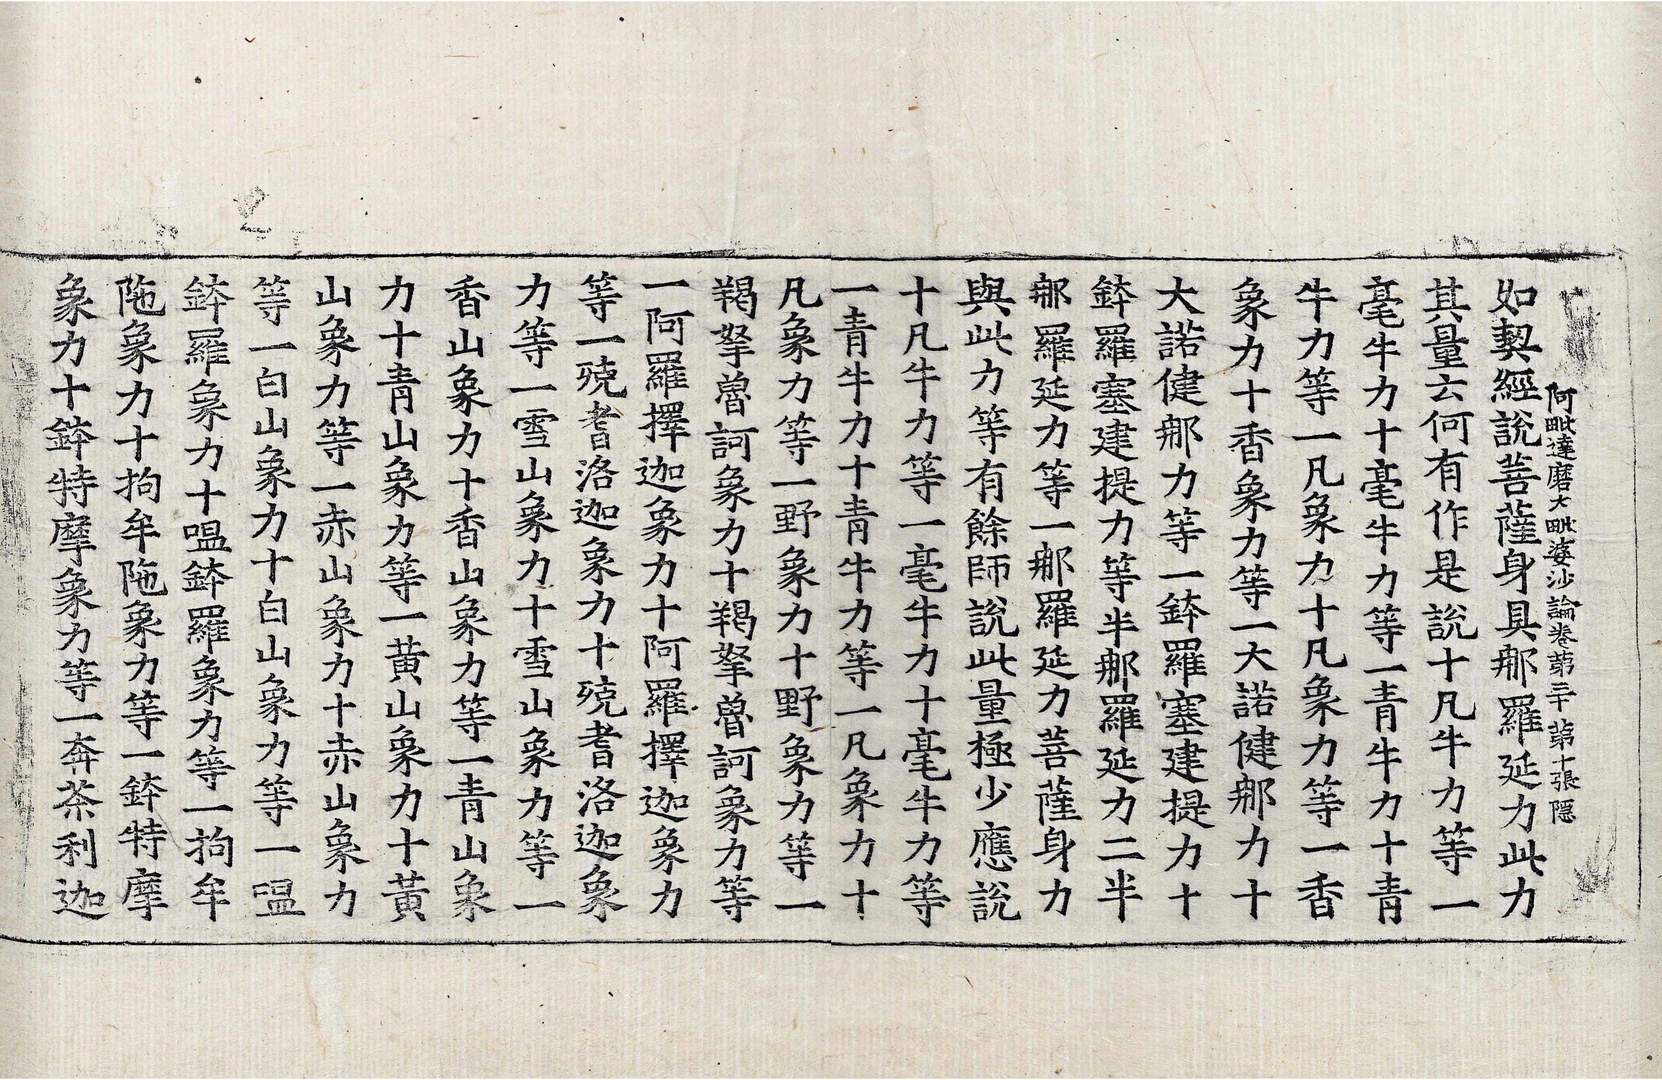 阿毗達磨大毗婆沙論卷第三十 第十張 隱
如契經說菩薩身具那羅延力此力
其量云何有作是說十凡牛力等一
毫牛力十毫牛力等一青牛力十青
牛力等一凡象力十凡象力等一香
象力十香象力等一大諾健那力十
大諾健那力等一鉢羅塞建提力十
鉢羅塞建提力等半那羅延力二半
那羅延力等一那羅延力菩薩身力
與此力等有餘師說此量極少應說
十凡牛力等一毫牛力十毫牛力等
一青牛力十青牛力等一凡象力十
凡象力等一野象力十野象力等一
羯拏魯訶象力十羯拏魯訶象力等
一阿羅擇迦象力十阿羅擇迦象力
等一殑耆洛迦象力十殑耆洛迦象
力等一雪山象力十雪山象力等一
香山象力十香山象力等一青山象
力十青山象力等一黃山象力十黃
山象力等一赤山象力十赤山象力
等一白山象力十白山象力等一嗢
鉢羅象力十嗢鉢羅象力等一拘牟
陁象力十拘牟陁象力等一鉢特摩
象力十鉢特摩象力等一奔荼利迦